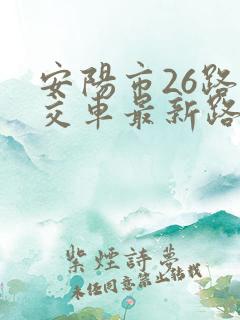 安陽市26路
交車最新路
紫煙詩夢
未经同意禁止转载